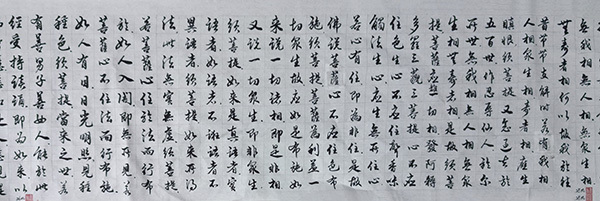 無我相無人相
無壽者相何以故我於往
昔節節支解時若有我相
人相眾生相壽者相應生
瞋恨須菩提又念過去於
五百世作忍辱仙人於爾
所世無我相無人相無眾
生相無壽者相是故須菩
提菩薩應離一切相發阿耨
多羅三藐三菩提心不應
住色生心不應住聲香味
觸法生心應生無所住心
若心有住即為非住是故
佛說菩薩心不應住色布
施須菩提菩薩為利益一
切眾生故應如是布施如
來說一切諸相即是非相
又說一切眾生即非眾生
須菩提如來是真語者實
語者如語者不誑語者不
異語者須菩提如來所得
法此法無實無虛須菩提
若菩薩心住於法而行布
施如人入闇即無所見若
菩薩心不住法而行布施
如人有目日光明照見種
種色須菩提當來之世若
有善男子善女人能於此
經受持讀誦即為如來以